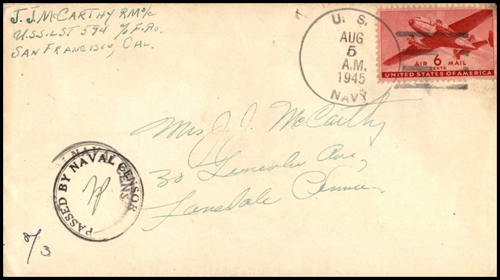 J. J. McCARTHY RM2/c
U.S.S. LST 594 c/o F.P.O.
SAN FRANCISCO, CAL.
U. S.
AUG
5
A.M.
1945
NAVY
6
CENTS
AIR MAIL
UNITED STATES OF AMERICA
Mrs J. J. McCarthy
30 Lincoln Ave,
Lansdale Penna.
PASSED BY NAVAL CENSOR